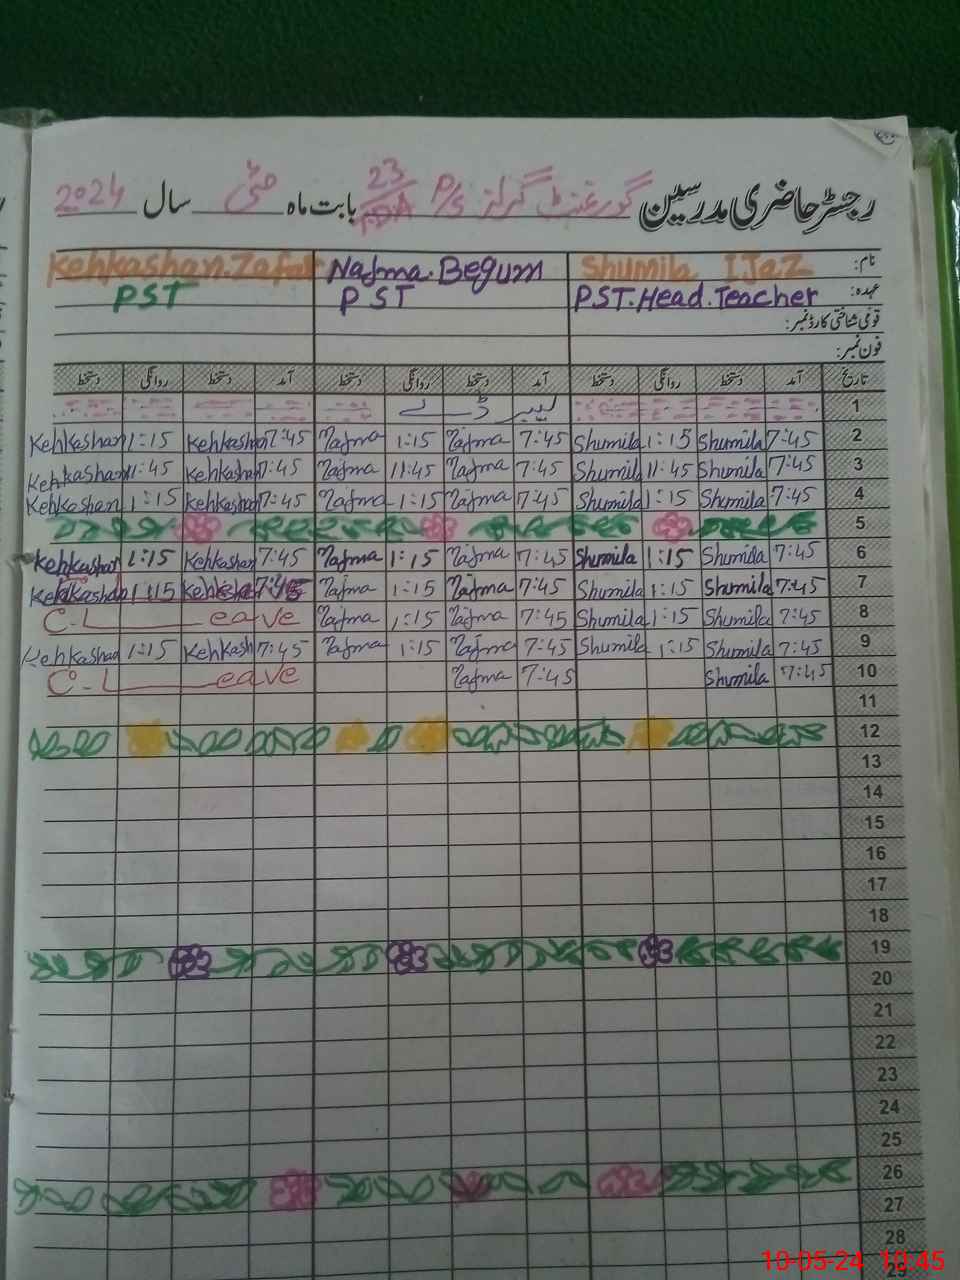 رجسٹر حاضری مدرسین گورنمنٹ گرلز P/S 23 بابت ماہ مئی سال 2024
نام: Shumila IJaZ Najma. Begum Kehkashan. Zafar
عہدہ: PST. Head. Teacher PST PST
قومی شناختی کارڈ نمبر:
فون نمبر:
تاریخ آمد دستخط روانگی دستخط آمد دستخط روانگی دستخط آمد دستخط روانگی دستخط
1 لیبر ڈے
2 7:45 Shumila 1:15 Shumila 7:45 Najma 1:15 Najma 7:45 Kehkashan 1:15 Kehkashan
3 7:45 Shumila 11:45 Shumila 7:45 Najma 11:45 Najma 7:45 Kehkashan 11:45 Kehkashan
4 7:45 Shumila 1:15 Shumila 7:45 Najma 1:15 Najma 7:45 Kehkashan 1:15 Kehkashan
5
6 7:45 Shumila 1:15 Shumila 7:45 Najma 1:15 Najma 7:45 Kehkashan 1:15 Kehkashan
7 7:45 Shumila 1:15 Shumila 7:45 Najma 1:15 Najma 7:45 1:15 Kehkashan
8 7:45 Shumila 1:15 Shumila 7:45 Najma 1:15 Najma C-L eave
9 7:45 Shumila 1:15 Shumila 7:45 Najma 1:15 Najma 7:45 Kehkash 1:15 Kehkashan
10 7:45 Shumila 7:45 Najma C-L eave
11
12
13
14
15
16
17
18
19
20
21
22
23
24
25
26
27
28
29
10-05-24 10:45